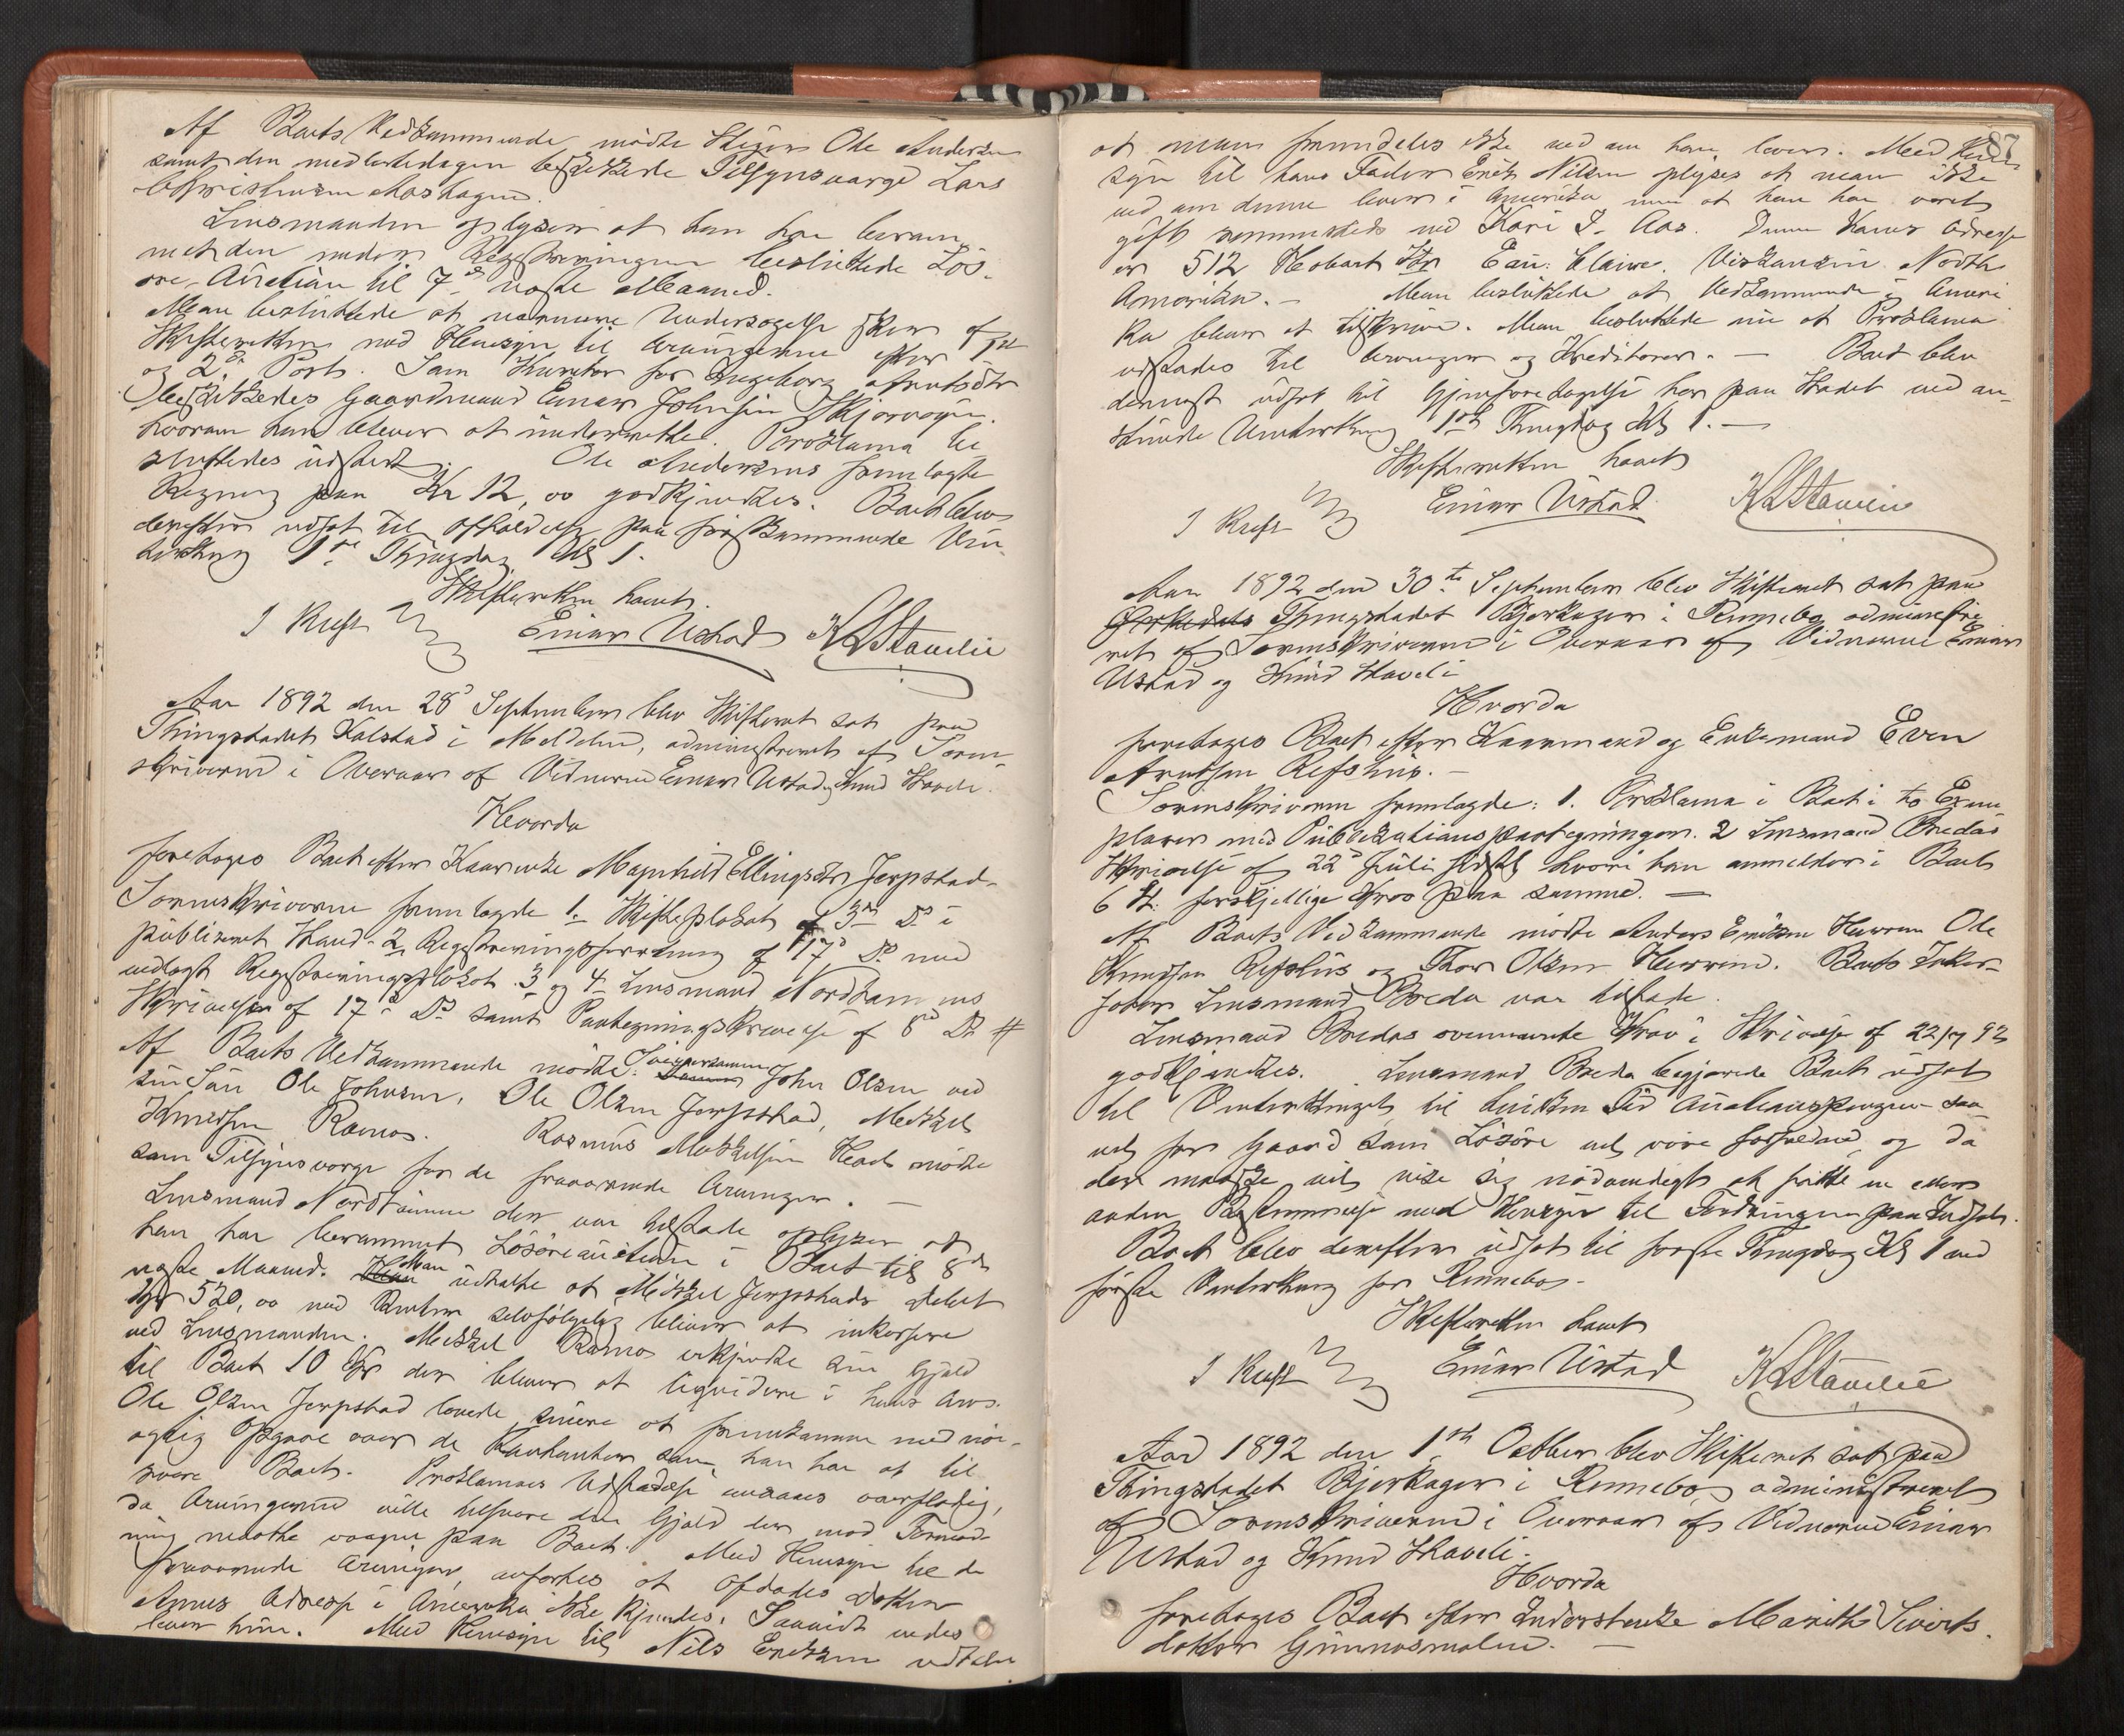 Af Boets Vedkommende mødte Stiger Ole Andersen
samt den medlertidagen beskikkede Tilsynsværge Lars
Christensen Moshagen.
Lensmanden oplyser at han har beram-
met den under Registreringen besluttede Løs-
øre-Auction til 7de næste Maaned.
Man besluttede at nærmere Undersøgelse sker af
Skifteretten med Hensyn til Arvingerne efter 1ste
og 2den Post. Som Kurator for Ingeborg Arntsdtr
beskikkedes Gaardmand Einar Johnsen Skjørvagen
hvorom han bliver at underrette. Proklama be
sluttedes udstedt. Ole Andersens fremlagte
Regning paa Kr 12,00 godkjendtes. Boet blev
derefter udsat til Afholdelse paa førstkommende Vin-
terthing 1ste Thingdag Kl 1.
Skifteretten hævet.
J Rust Einar Ustad K Stavlie
Aar 1892 den 28de September blev Skifteret sat paa
Thingstedet Kalstad i Meldalen, administreret af Soren-
skriveren i Overvær af Vidnerne Einar Ustad, Knud Stavli.
Hvorda
foretoges Boet efter Kaarenke Magnhild Ellingsdtr Jerpstad-
Sorenskriveren fremlagde 1. Skifteplakat af 3de Ds i
publiceret Stand- 2. Registreringsforretning af 17de Ds med
vedlagt Registreringsplakat. 3 og 4. Lensmand Nordtømmes
Skrivelser af 17de Ds samt Paategningsskrivelse af 8de Ds #
Af Boets Vedkommende mødte: Svigersønnen John Olsen ved
sin Søn Ole Johnsen, Ole Olsen Jerpstad, Mekkel
Knudsen Ramos. Rasmus Mekkelsen Hoel mødte
som Tilsynsværge for de fraværende Arvinger. —
Lensmand Nordtømme der var tilstede oplyser at
han har berammet Løsøreauction i Boet til 8de
næste Maaned. Man udtalte at Mikkel Jerpstads Debet
Kr 520,00 med Renter selvfølgelig bliver at inkassere
ved Lensmanden. Mekkel Ramos erkjendte sin Gjæld
til Boet 10 Kr der bliver at liquidere i hans Arv.
Ole Olsen Jerpstad lovede senere at fremkomme med nøi-
agtig Opgave over de Kontanter som han har at til
svare Boet. Proklamas Udstædelse ansaaes overflødig,
da Arvingerne ville tilsvare den Gjæld der mod Formod-
ning maatte vaagne paa Boet. Med Hensyn til de
fraværende Arvinger anførtes at Afdødes Datter
Annes Adresse i Amerika ikke kjendes. Saavidt vides
lever hun. Med Hensyn til Nils Eriksen udtales
87
at man fremdeles ikke ved om han lever. Med Hen-
syn til hans Fader Erik Nilsen oplyses at man ikke
ved om denne lever i Amerika men at han har været
gift sammesteds med Kari J. Aas. Denne Kones Adresse
er 512 Hobart Str Eau: Claire. Viskonsin North
Amerika. — Man besluttede at Vedkommende i Ameri
ka bliver at tilskrive. Man besluttede nu at Proklama
udstædes til Arvinger og Kreditorer. — Boet blev
dernæst udsat til Gjenforetagelse her paa Stedet ved an-
stundende Vinterthing 1ste Thingdag Kl 1. —
Skifteretten hævet
J Rust Einar Ustad K Stavlie
Aar 1892 den 30te September blev Skifteret sat paa
Thingstedet Bjerkager i Rennebo administre
ret af Sorenskriveren i Overvær af Vidnerne Einar
Ustad og Knud Stavli
Hvorda
foretoges Boet efter Kaarmand og Enkemand Even
Arntsen Refshus. —
Sorenskriveren fremlagde: 1. Proklama i Boet i to Exem
plarer med Publikationspaategninger. 2 Lensmand Bredas
Skrivelse af 22de Juli sidstl hvori han anmelder i Boet
6 St. forskjellige Krav paa samme. —
Af Boets Vedkommende mødte Anders Eriksen Hurrem Ole
Knudsen Refshus og Thore Olsen Hurrem. Boets Inkas-
sator Lensmand Breda var tilstede.
Lensmand Bredas ovennævnte Krav i Skrivelse af 22/7 92
godkjendtes. Lensmand Breda begjærede Boet udsat
til Vinterthinget til hvilken Tid Auctionspengene saa
vel for Gaard som Løsøre vil være forfaldne og da
der maaske vil vise sig nødvendigt at fatte en eller
anden Bestemmelse med Hensyn til Fordringen paa Indsats.
Boet blev derefter udsat til første Thingdag Kl 1 ved
første Vinterthing for Rennebo-
Skifteretten hævet
J Rust Einar Ustad K Stavlie
Aar 1892 den 1ste October blev Skifteret sat paa
Thingstedet Bjerkager i Rennebo, administreret
af Sorenskriveren i Overvær af Vidnerne Einar
Ustad og Knud Stavli.
Hvorda
foretoges Boet efter Inderstenke Marith Sivers-
datter Gunnesmoen. —